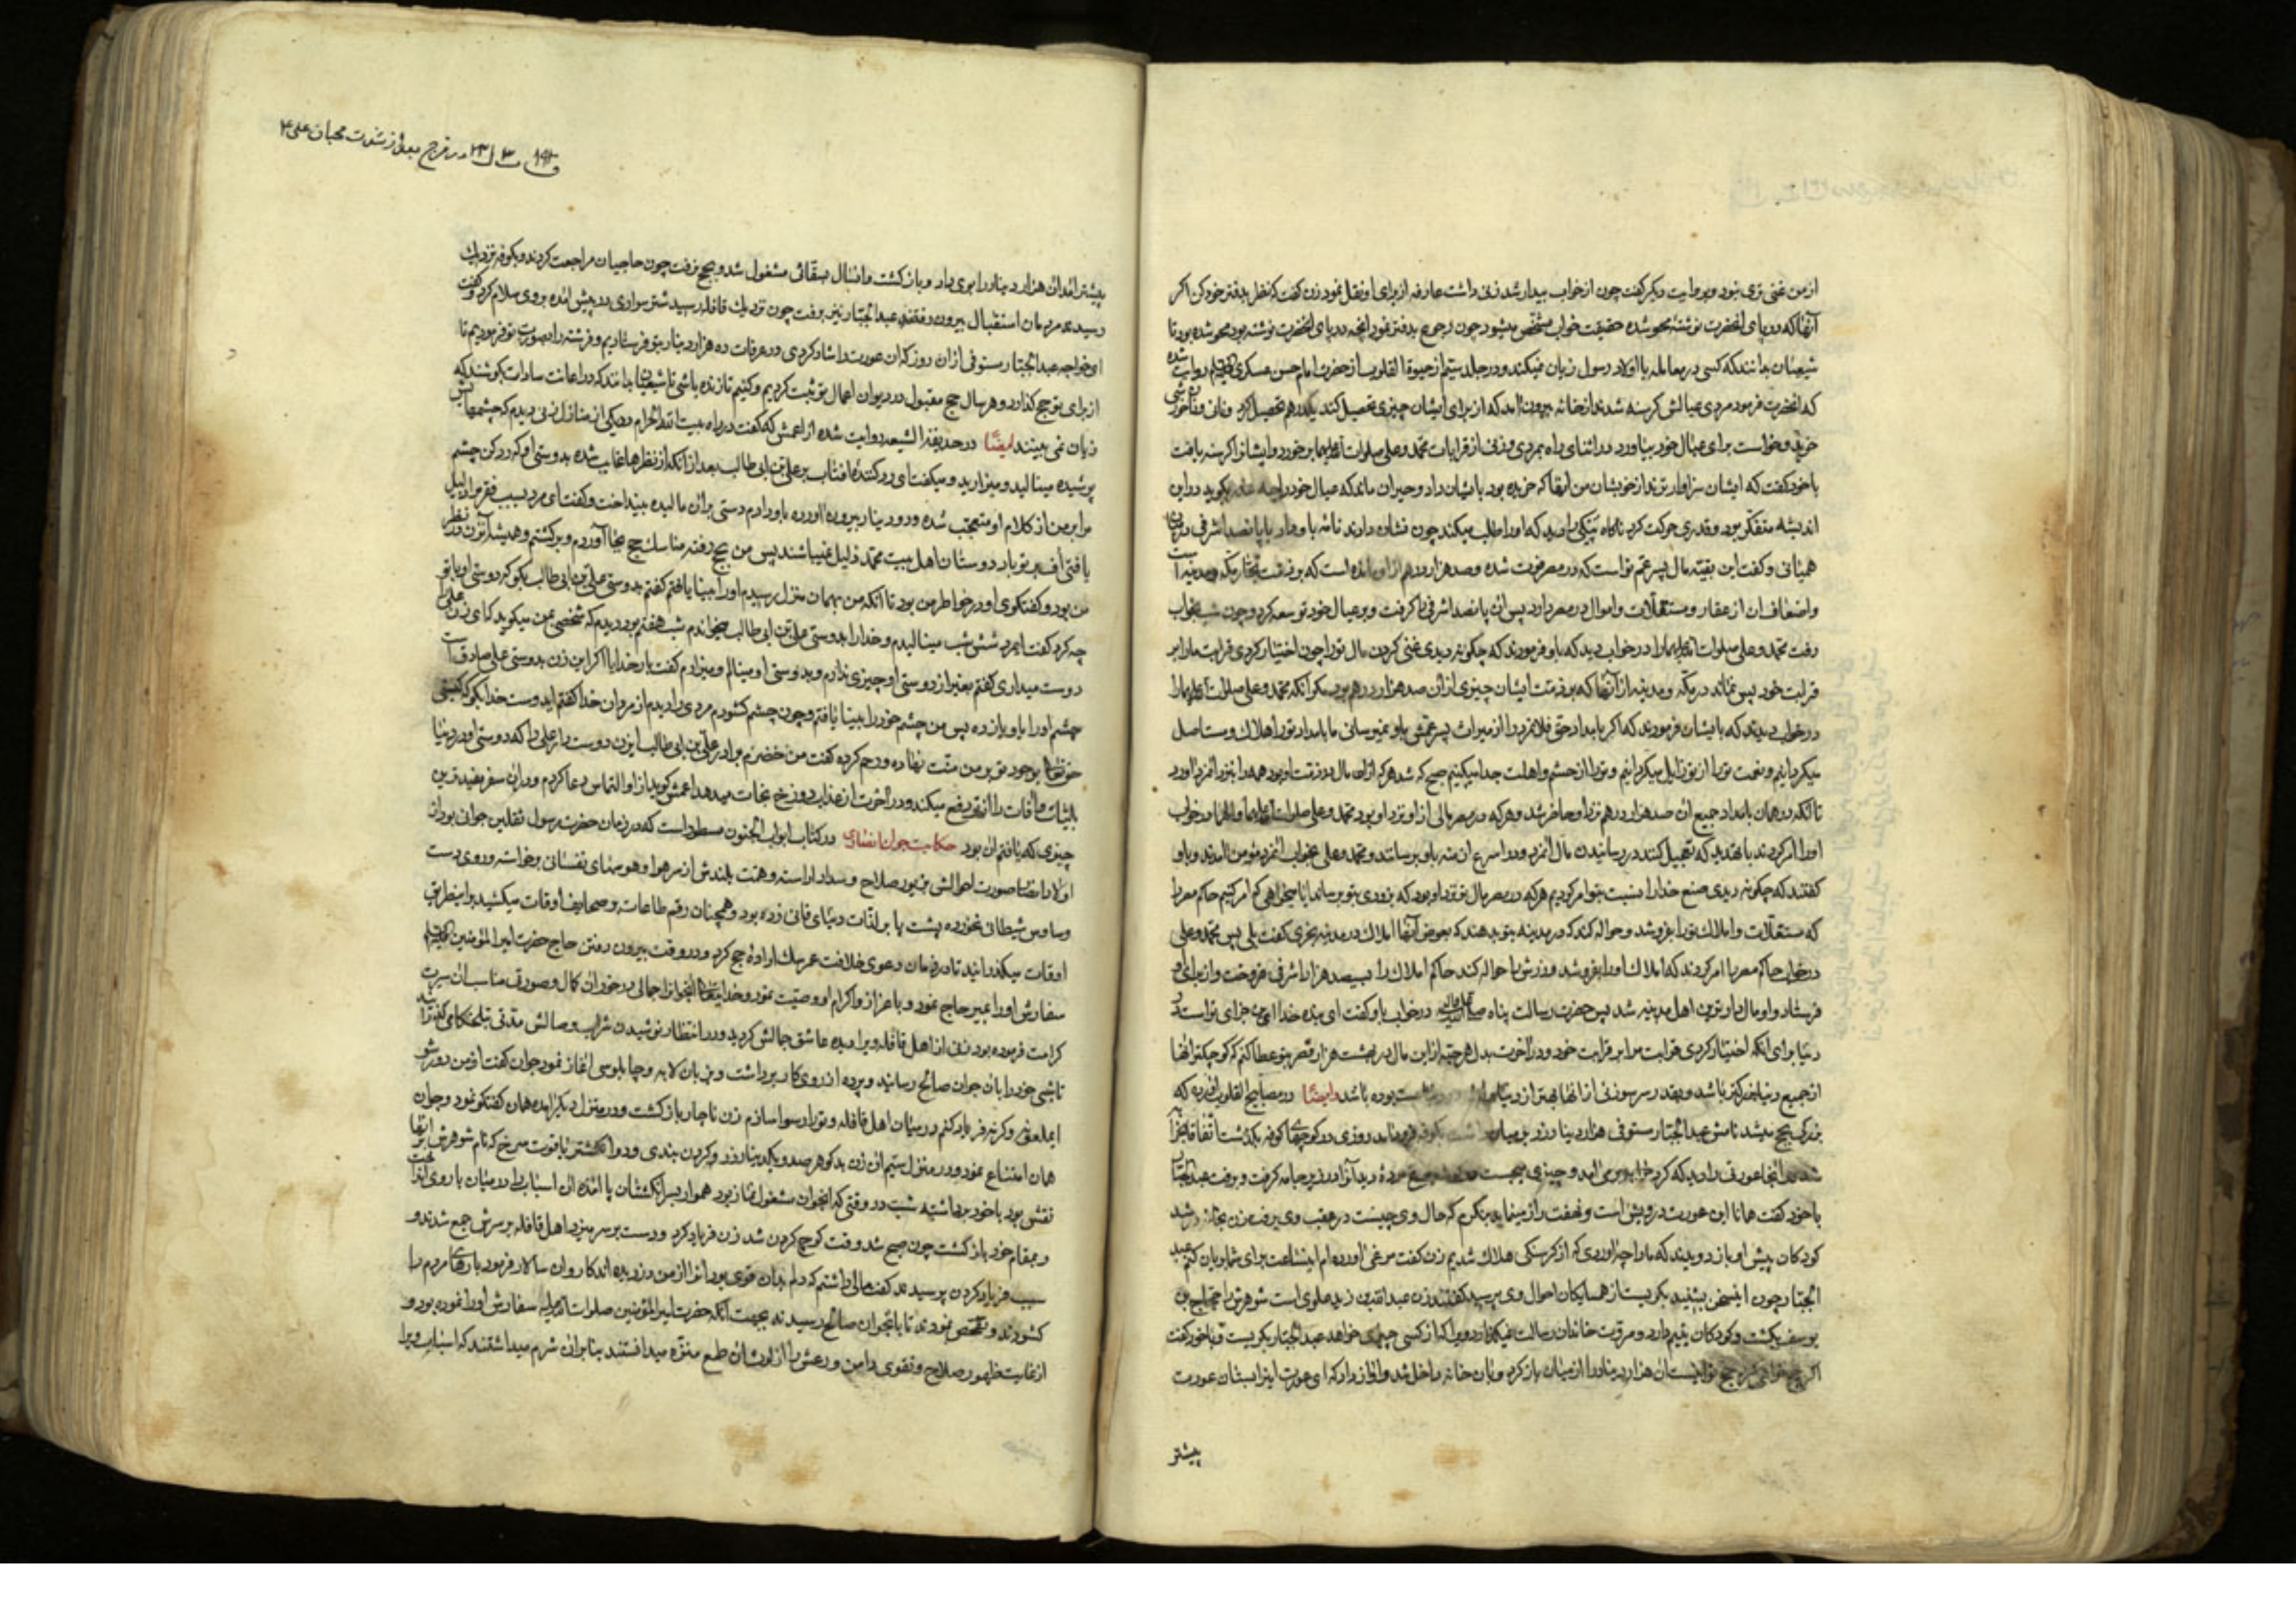 از من غنی تری نبود و بروایت دیگر گفت چون از خواب بیدار شد زنی داشت عارفه از برای او نقل نمود زن گفت که نظر بدفتر خود کن اگر
آنها که در پای انحضرت نوشتهٔ محو شده حقیقت خواب مشخص میشود چون رجوع بدفتر نمود آنچه در پای انحضرت نوشته بود محو شده بود تا
شیعیان بدانند که کسی در معامله با اولاد رسول زیان نمیکند و در جلد سیّم از حیوة القلوب از حضرت امام حسن عسکری روایت شده
که انحضرت فرمود مردی عیالش گرسنه شدند از خانه بیرون آمد که از برای ایشان چیزی تحصیل کند یکدرهم تحصیل کرد و نان و نانخورشی
خرید و خواست برای عیال خود بیاورد در اثنای راه بمردی و زنی از قرابات محمّد و علی صلوات الله علیهما برخورد و ایشانرا گرسنه یافت
با خود گفت که ایشان سزاوارترند از خویشان من آنها که خریده بود بایشان داد و حیران ماند که عیال خود را چه بگوید در این
اندیشه متفکّر بود و قدری حرکت کرد ناگاه پیکی را دید که او را طلب میکند چون نشان دادند نامه باو داد با پانصد اشرفی در
همیانی و گفت این بقیّه مال پسر عمّ تو است که در مصر فوت شده و صد هزار درهم از او مانده است که بر ذمّت تجّار مکّه و مدینه است
و اضعاف ان از عقار و مستغلات و اموال در مصر دارد پس ان پانصد اشرفی را گرفت و بر عیال خود توسعه کرد و چون شب بخواب
رفت محمّد و علی صلوات الله علیهما را در خواب دید که باو فرمودند که چگونه دیدی غنی کردن مال تو را چون اختیار کردی قرابت ما را بر
قرابت خود پس نماند در مکّه و مدینه از آنها که بر ذمّت ایشان چیزی از ان صد هزار درهم بود مگر آنکه محمّد و علی صلوات الله علیهما را
در خواب دیدند که بایشان فرمودند که اگر بامداد حقّ فلانمرد را از میراث پسر عمّش باو نمیرسانی ما بامداد تو را هلاک و مستاصل
میگردانیم و نعمت تو را از تو زایل میگردانیم و تو را از حشم و اهلت جدا میکنیم صبح که شد هر که از ان مال در ذمّت او بود همه را بنزد آنمرد آورد
تا آنکه در همان بامداد جمیع ان صد هزار درهم نزد او حاضر شد و هر که در مصر مالی از او نزد او بود محمّد و علی صلوات الله علیهما در خواب
او را امر کردند با تهدید که تعجیل کنند در رسانیدن مال آنمرد و در اسرع ازمنه باو برسانند و محمّد و علی بخواب آنمرد مؤمن آمدند و باو
گفتند که چگونه دیدی صنع خدا را نسبت بتو امر کردیم هر که در مصر مال تو نزد او بود که بزودی بتو برساند ایا میخواهی که امر کنیم حاکم مصر را
که مستغلّات و املاک تو را بفروشد و حواله کند که در مدینه بتو بدهند که بعوض آنها املاک در مدینه بخری گفت بلی پس محمّد و علی
در خواب حاکم مصر را امر کردند که املاک او را بفروشد و زرش را حواله کند حاکم املاک را بسیصد هزار اشرفی فروخت و از برای او
فرستاد و او مال دارترین اهل مدینه شد پس حضرت رسالت پناه در خواب باو گفت ای بنده خدا این جزای تو است در
دنیا برای آنکه اختیار کردی قرابت مرا بر قرابت خود و در آخرت بدل هر حبّه از این مال در بهشت هزار قصر بتو عطا کنم که کوچکتر آنها
از جمیع دنیا بزرگتر باشد و بقدر سر سوزنی از انها بهتر از دنیا بوده باشد وایضًا در مصابیح القلوب آورده که
بزرگی بحج میشد نامش عبدالجبّار مستوفی هزار دینار زر بر میان داشت بکوفه روزی در کوچهای کوفه بگذشت اتّفاقا
شد در انجا عورتی را دید که گرد خرابه بر می آمد و چیزی میجست مرغ مردهٔ دید آنرا در زیر جامه گرفت و برفت عبدالجبّار
با خود گفت همانا این عورت درویش است و نهفت راز مینماید بنگرم که حال وی چیست در عقب وی برفت زن بخانه در شد
کودکان پیش او باز دویدند که ما را چه آوردی که از گرسنگی هلاک شدیم زن گفت مرغی آورده ام اینساعت برای شما بریان کنم عبد
الجبّار چون اینسخن بشنید بگریست از همسایگان احوال وی پرسید گفتند زن عبدالله بن زید علوی است شوهرش را حجّاج بن
یوسف بکشت و کودکان یتیم دارد و مروّت خاندان رسالت نمیگذارد ویرا که از کسی چیزی خواهد عبدالجبّار بگریست و با خود گفت
اگر حج خواهی کرد حج تو اینست ان هزار دینار را از میان باز کرد و بان خانه داخل شد و آواز داد که ای عورت اینرا بستان عورت
پیشتر
در فرج بعد از شدت محبان علی
پیشتر آمد ان هزار دینار را بوی داد و باز گشت و انسال بسقّائی مشغول شد و بحج نرفت چون حاجیان مراجعت کردند و بکوفه نزدیک
رسیدند مردمان استقبال بیرون رفتند عبدالجبّار نیز برفت چون نزدیک قافله رسید شتر سواری در پیش آمده بروی سلام کرد و گفت
ای خواجه عبدالجبّار مستوفی از ان روز که ان عورت را شاد کردی در عرفات ده هزار دینار بتو فرستادیم و فرشته را بصورت تو فرمودیم تا
از برای تو حج گذارد و هر سال حج مقبول در دیوان اعمال تو ثبت کردیم و کنیم تا زنده باشی تا شیعیان بدانند که در اعانت سادات بکوشند که
زیان نمی بینند ایضًا در حدیقة الشیعه روایت شده از اعمش که گفت در راه بیت الله الحرام در یکی از منازل زنی دیدم که چشمهایش
پوشیده مینالید و میزارید و میگفت ای رد کنندهٔ افتاب بر علی بن ابی طالب بعد از آنکه از نظرها غایب شده بدوستی او که رد کن چشم
مرا بر من از کلام او متعجّب شده و دو دینار بیرون آورده باو دادم دستی بران مالیده بینداخت و گفت ای مرد بسبب فقر مرا ذلیل
یافتی اف بر تو باد دوستان اهل بیت محمّد ذلیل نمیباشند پس من بحج رفته مناسک حج بجا آوردم و برگشتم و همیشه آنزن در نظر
من بود و گفتگوی او در خواطر من بود تا آنکه من بهمان منزل رسیدم او را بینا یافتم گفتم بدوستی علی بن ابی طالب بگو که دوستی او با تو
چه کرد گفت ایمرد شش شب مینالیدم و خدا را بدوستی علی بن ابی طالب میخواندم شب هفتم بود دیدم که شخصی بمن میگوید که ای زن علی را
دوست میداری گفتم بغیر از دوستی او چیزی ندارم و بدوستی او مینالم و میزارم گفت بار خدایا اگر این زن بدوستی علی صادق است
چشم او را باو باز ده پس من چشم خود را بینا یافتم و چون چشم گشودم مردی را دیدم از مردان خدا گفتم ایدوست خدا بگو که کیستی
حقتعالی بوجود تو بر من منّت نهاده و رحم کرده گفت من خضرم برادر علی بن ابی طالب ایزن دوست دار علی را که دوستی او در دنیا
بلیّات و آفات را از تو دفع میکند و در آخرت از عذاب دوزخ نجات میدهد اعمش گوید از او التماس دعا کردم و در ان سفر مفیدترین
چیزی که یافتم ان بود حکایت جوان انصاری در کتاب ابواب الجنون مسطور است که در زمان حضرت رسول ثقلین جوانی بود از
اولاد انصار صورت احوالش بزیور صلاح و سداد اراسته و همّت بلندش از سر هوا و هوسهای نفسانی برخواسته و روی دست
وساوس شیطانی نخورده پشت پا بر لذّات دنیای فانی زده بود و همچنان رقم طاعات بر صحایف اوقات میکشید بر اینطریق
اوقات میگذرانید تا در زمان دعوی خلافت عمر یکسال ارادهٔ حج کرد و در وقت بیرون رفتن حاج حضرت امیر المؤمنین
سفارش او را بمیر حاج نمود و باعزاز و اکرام او وصیّت نمود و خدایتعالی انجوانرا جمالی در خور ان کمال و صورتی مناسب ان سیرت
کرامت فرموده بود زنی از اهل قافله ویرا دیده عاشق جمالش گردید و در انتظار نوشیدن شراب وصالش مدّتی بتلخکامی گذرانید
تا شبی خود را بان جوان صالح رسانید و پرده از روی کار برداشت و زبان لابه و چاپلوسی اغاز نمود جوان گفت از من دور شو
ایملعونه و گرنه فریاد کنم در میان اهل قافله و تو را رسوا سازم زن ناچار باز گشت و در منزل دیگر آمده همان گفتگو نمود و جوان
همان امتناع نمود و در منزل سیّم ان زن بدگوهر صد و یکدینار زر و گردن بندی و دو انگشتر یاقوت سرخ که نام شوهرش بر آنها
نقش بود با خود برداشته شب در وقتی که انجوان مشغول نماز بود هموار بسر انگشتان پا آمده ان اسباب را در میان باروی انجوان
و بمقام خود باز گشت چون صبح شد و وقت کوچ کردن شد زن فریاد کرد و دست بر سر میزد اهل قافله بر سرش جمع شدند و
سبب فریاد کردن پرسیدند گفت مالی داشتم که دلم بدان قوی بود انرا از من دزدیده اند کاروان سالار فرمود بارهای مردم را
گشودند و تفحّص نمودند تا بانجوان صالح رسیدند بجهت آنکه حضرت امیر المؤمنین صلوات الله علیه سفارش او را نموده بود و
از غایت ظهور صلاح و تقوی دامن و رعش را از لوث ان طمع منزّه میدانستند بنابران شرم میداشتند که اسباب ویرا